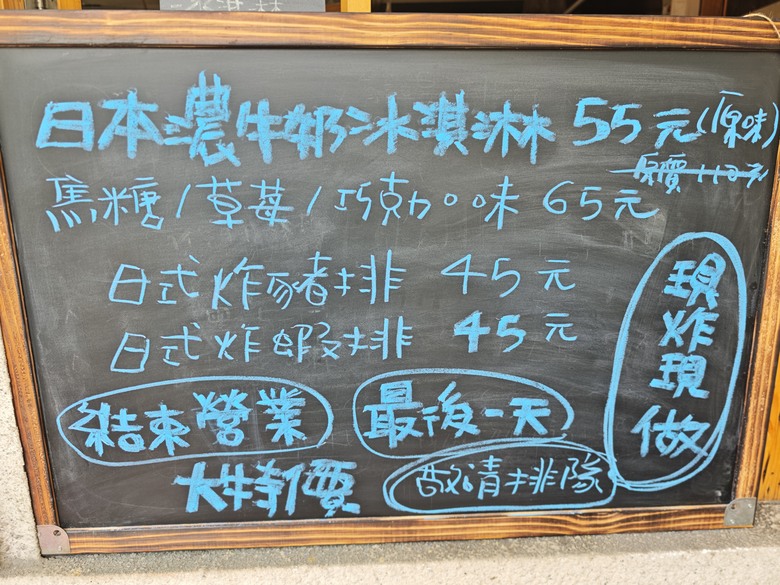 日本濃牛奶冰淇淋 55元(原味)
原價110元
焦糖/草莓/巧克力口味 65元
日式炸豬排 45元
日式炸蝦排 45元
現炸現做
結束營業 最後一天
大特價 敬請排隊